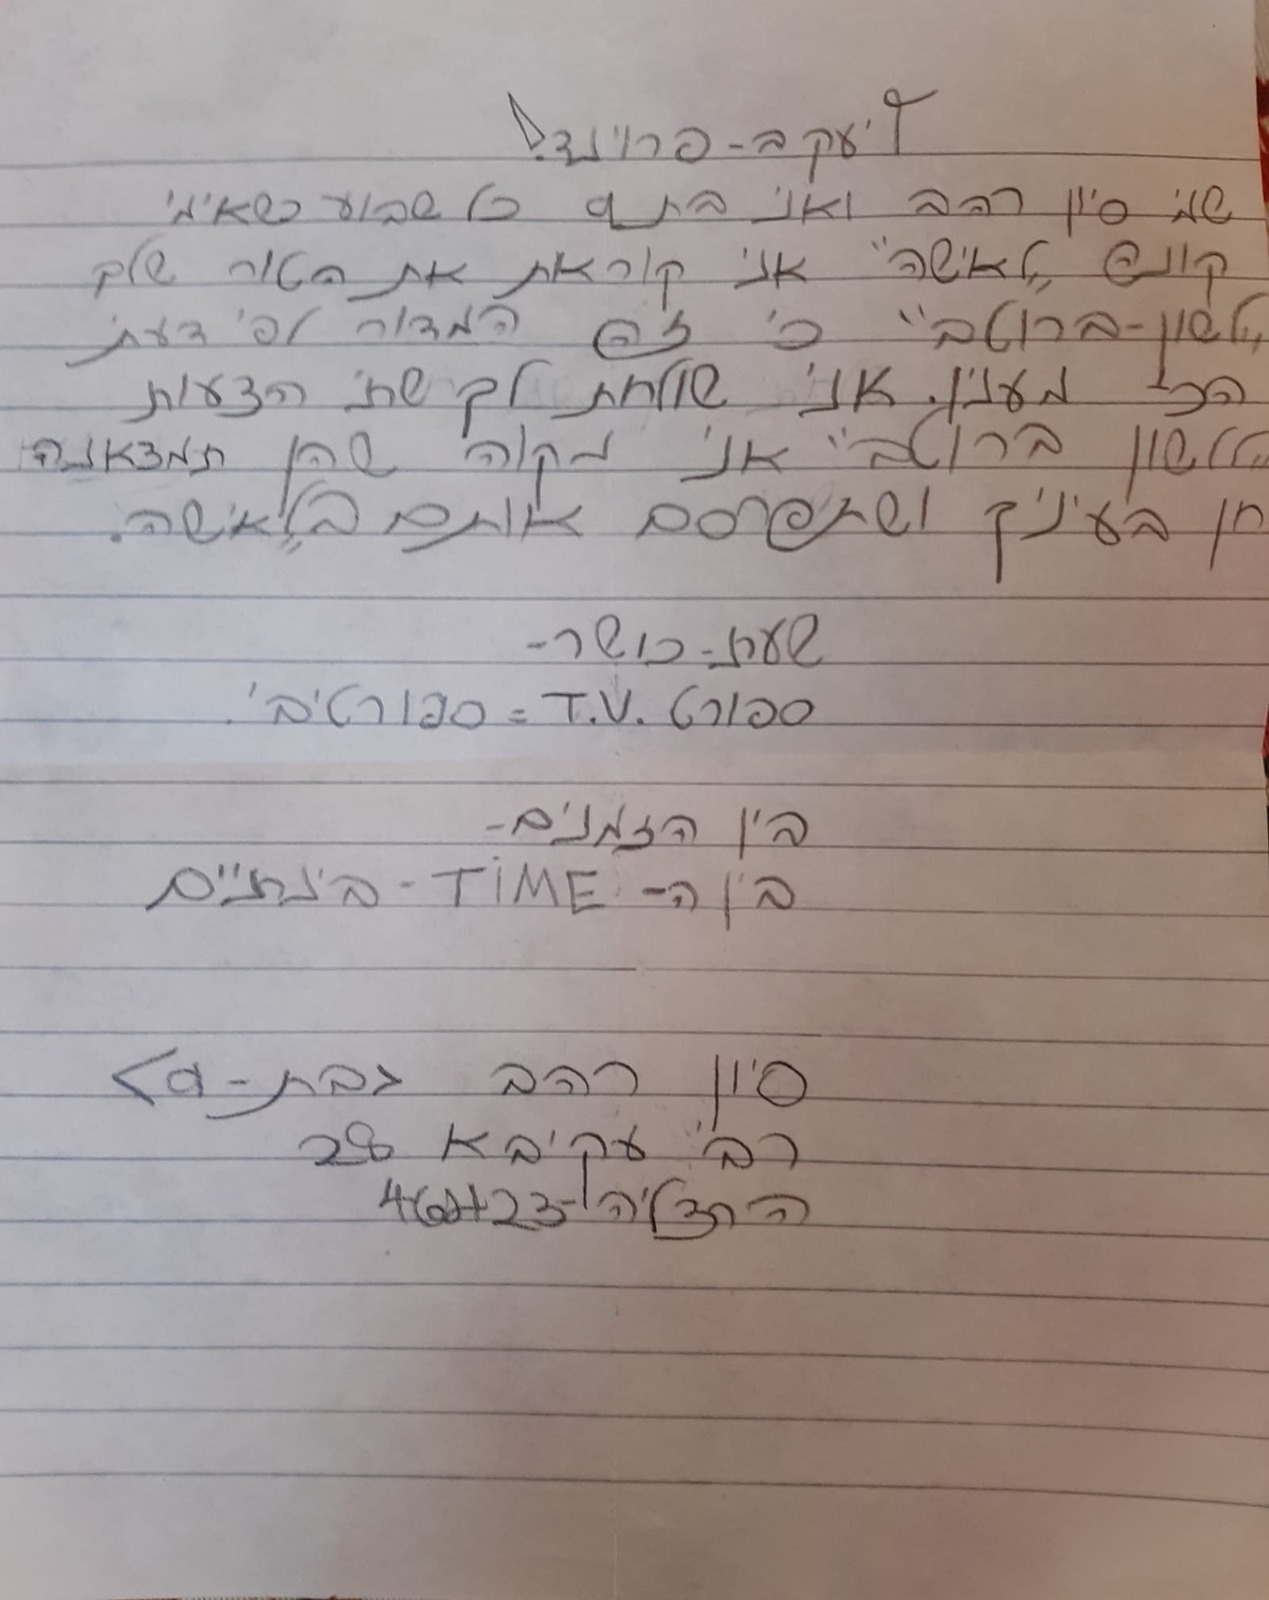 ליעקב-פרוינד!
שמי סיון רהב ואני בת 9 כל שבוע כשאימי
קונה "לאישה" אני קוראת את הטור שלך
"לשון-ברוטב" כי זה המדור לפי דעתי
הכי מענין. אני שולחת לך שתי הצעות
ל"לשון ברוטב" אני מקוה שהן תמצאנה
חן בעיניך ושתפרסם אותם ב"לאישה.
שעת-כושר-
ספורט T.V. = ספורטיבי.
בין הזמנים-
בין ה- TiME - בינתיים
סיון רהב >בת-9<
רבי עקיבא 28
הרצליה-46423